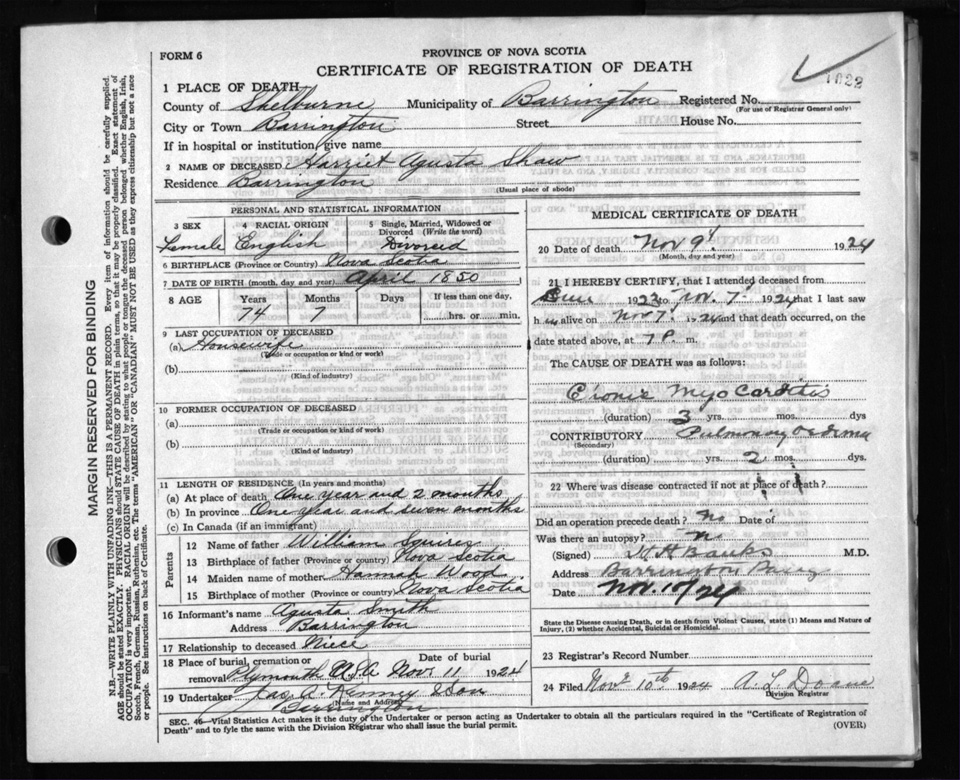 FORM 6
PROVINCE OF NOVA SCOTIA
CERTIFICATE OF REGISTRATION OF DEATH
1622
1 PLACE OF DEATH
County of Shelburne Municipality of Barrington Registered No.
(For use of Registrar General only)
City or Town Barrington Street House No.
If in hospital or institution, give name
2 NAME OF DECEASED Harriet Agusta Shaw
Residence Barrington
(Usual place of abode)
PERSONAL AND STATISTICAL INFORMATION
3 SEX 4 RACIAL ORIGIN 5 Single, Married, Widowed or Divorced (Write the word)
Female English Divorced
6 BIRTHPLACE (Province or Country) Nova Scotia
7 DATE OF BIRTH (month, day and year) April 1850
8 AGE Years Months Days If less than one day,
74 7 hrs. or min.
9 LAST OCCUPATION OF DECEASED
(a) Housewife
(Trade or occupation or kind or work)
(b)
(Kind of industry)
10 FORMER OCCUPATION OF DECEASED
(a)
(Trade or occupation or kind or work)
(b)
(Kind of industry)
11 LENGTH OF RESIDENCE (In years and months)
(a) At place of death One year and 2 months
(b) In province One year and seven months
(c) In Canada (if an immigrant)
Parents
12 Name of father William Squires
13 Birthplace of father (Province or Country) Nova Scotia
14 Maiden name of mother Hannah Wood
15 Birthplace of mother (Province or country) Nova Scotia
16 Informant's name Agusta Smith
Address Barrington
17 Relationship to deceased Niece
18 Place of burial, cremation or removal Date of burial
Plymouth Nov. 11 1924
19 Undertaker Jas A. Kenney & Son
(Name and Address)
Barrington
MEDICAL CERTIFICATE OF DEATH
20 Date of death Nov 9 1924
(Month, day and year)
21 I HEREBY CERTIFY, that I attended deceased from
1923 to Nov. 7 1924 that I last saw
h alive on Nov 7 1924 and that death occurred, on the
date stated above, at 7 P. m.
The CAUSE OF DEATH was as follows:
Cronic Myo Carditis
(duration) 3 yrs. mos. dys
CONTRIBUTORY Pulmonary oedema
(Secondary)
(duration) yrs. 2 mos. dys
22 Where was disease contracted if not at place of death?
Did an operation precede death? No Date of
Was there an autopsy? n
(Signed) M H Banks M.D.
Address Barrington Passage
Date Nov. 24
State the Disease causing Death, or in death from Violent Causes, state (1) Means and Nature of Injury, (2) whether Accidental, Suicidal or Homicidal.
23 Registrar's Record Number
24 Filed Nov 10th 1924 A. L. Doane
Division Registrar
SEC. 46—Vital Statistics Act makes it the duty of the Undertaker or person acting as Undertaker to obtain all the particulars required in the "Certificate of Registration of
Death" and to fyle the same with the Division Registrar who shall issue the burial permit. (OVER)
MARGIN RESERVED FOR BINDING
N.B.—WRITE PLAINLY WITH UNFADING INK—THIS IS A PERMANENT RECORD. Every item of information should be carefully supplied.
AGE should be stated EXACTLY. PHYSICIANS should STATE CAUSE OF DEATH in plain terms, so that it may be properly classified. Exact statement of
OCCUPATION is very important. RACIAL ORIGIN will be described by stating to what people or tongue the deceased person belonged whether English, Irish,
Scotch, French, German, Russian, Ruthenian, etc. The terms "AMERICAN" OR "CANADIAN" MUST NOT BE USED as they express citizenship but not a race
or people. See instructions on back of Certificate.